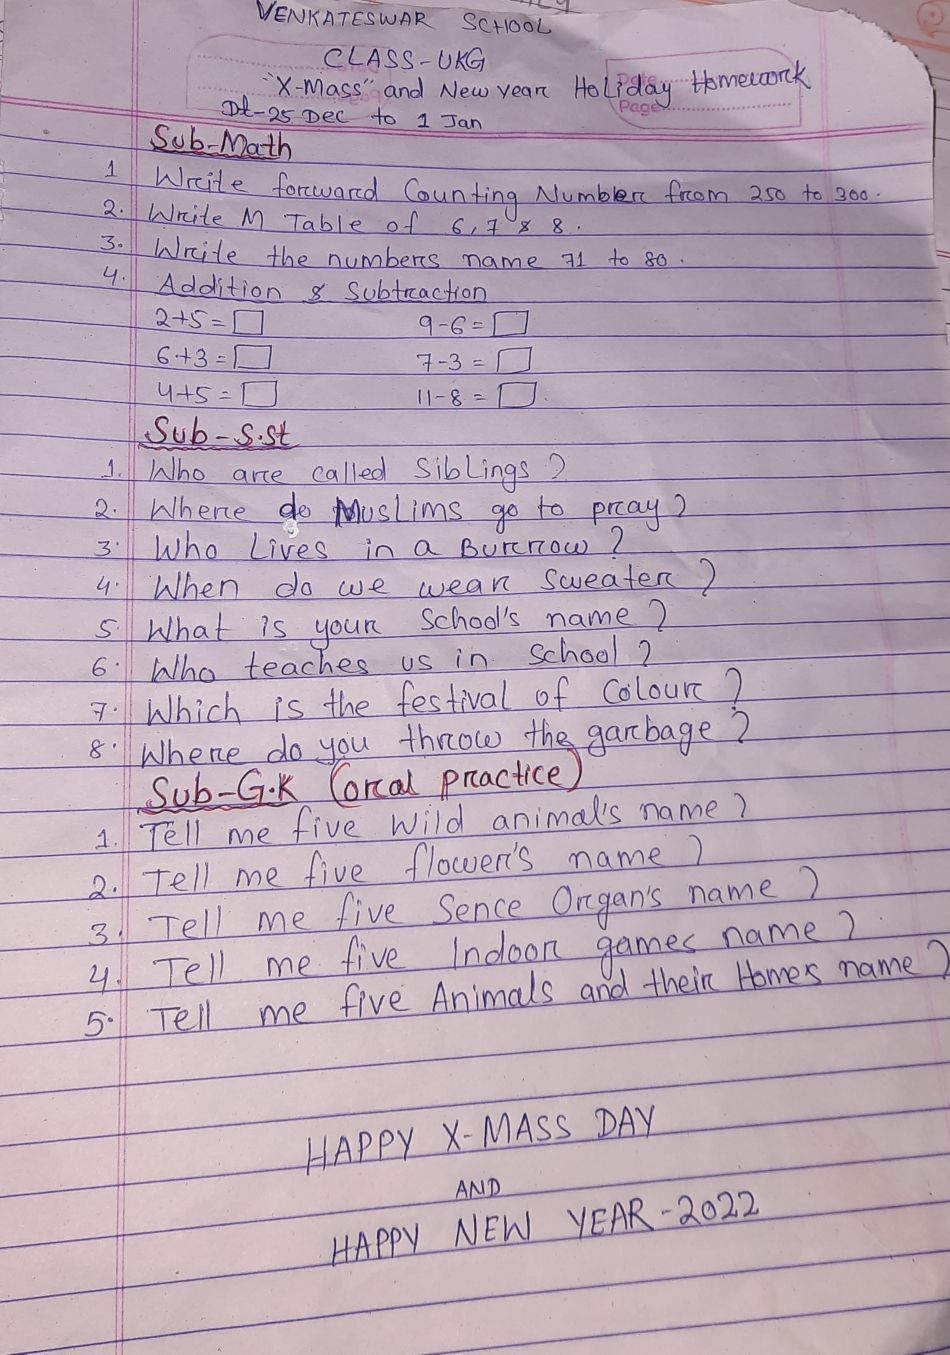 VENKATESWAR SCHOOL
CLASS-UKG
"X-Mass" and New year Holiday Homework
Dt-25 Dec to 1 Jan
Date
Page
Sub-Math
1 Write forward Counting Number from 250 to 300.
2. Write M Table of 6,7 & 8.
3. Write the numbers name 71 to 80.
4. Addition & Subtraction
2+5= 9-6=
6+3= 7-3=
4+5= 11-8=
Sub-S.st
1. Who are called Siblings?
2. Where do Muslims go to pray?
3. Who Lives in a Burrow?
4. When do we wear Sweater?
5. What is your School's name?
6. Who teaches us in School?
7. Which is the festival of Colour?
8. Where do you throw the garbage?
Sub-G.K (oral practice)
1. Tell me five Wild animal's name?
2. Tell me five flower's name?
3. Tell me five Sence Organ's name?
4. Tell me five Indoor games name?
5. Tell me five Animals and their Homes name?
HAPPY X-MASS DAY
AND
HAPPY NEW YEAR-2022